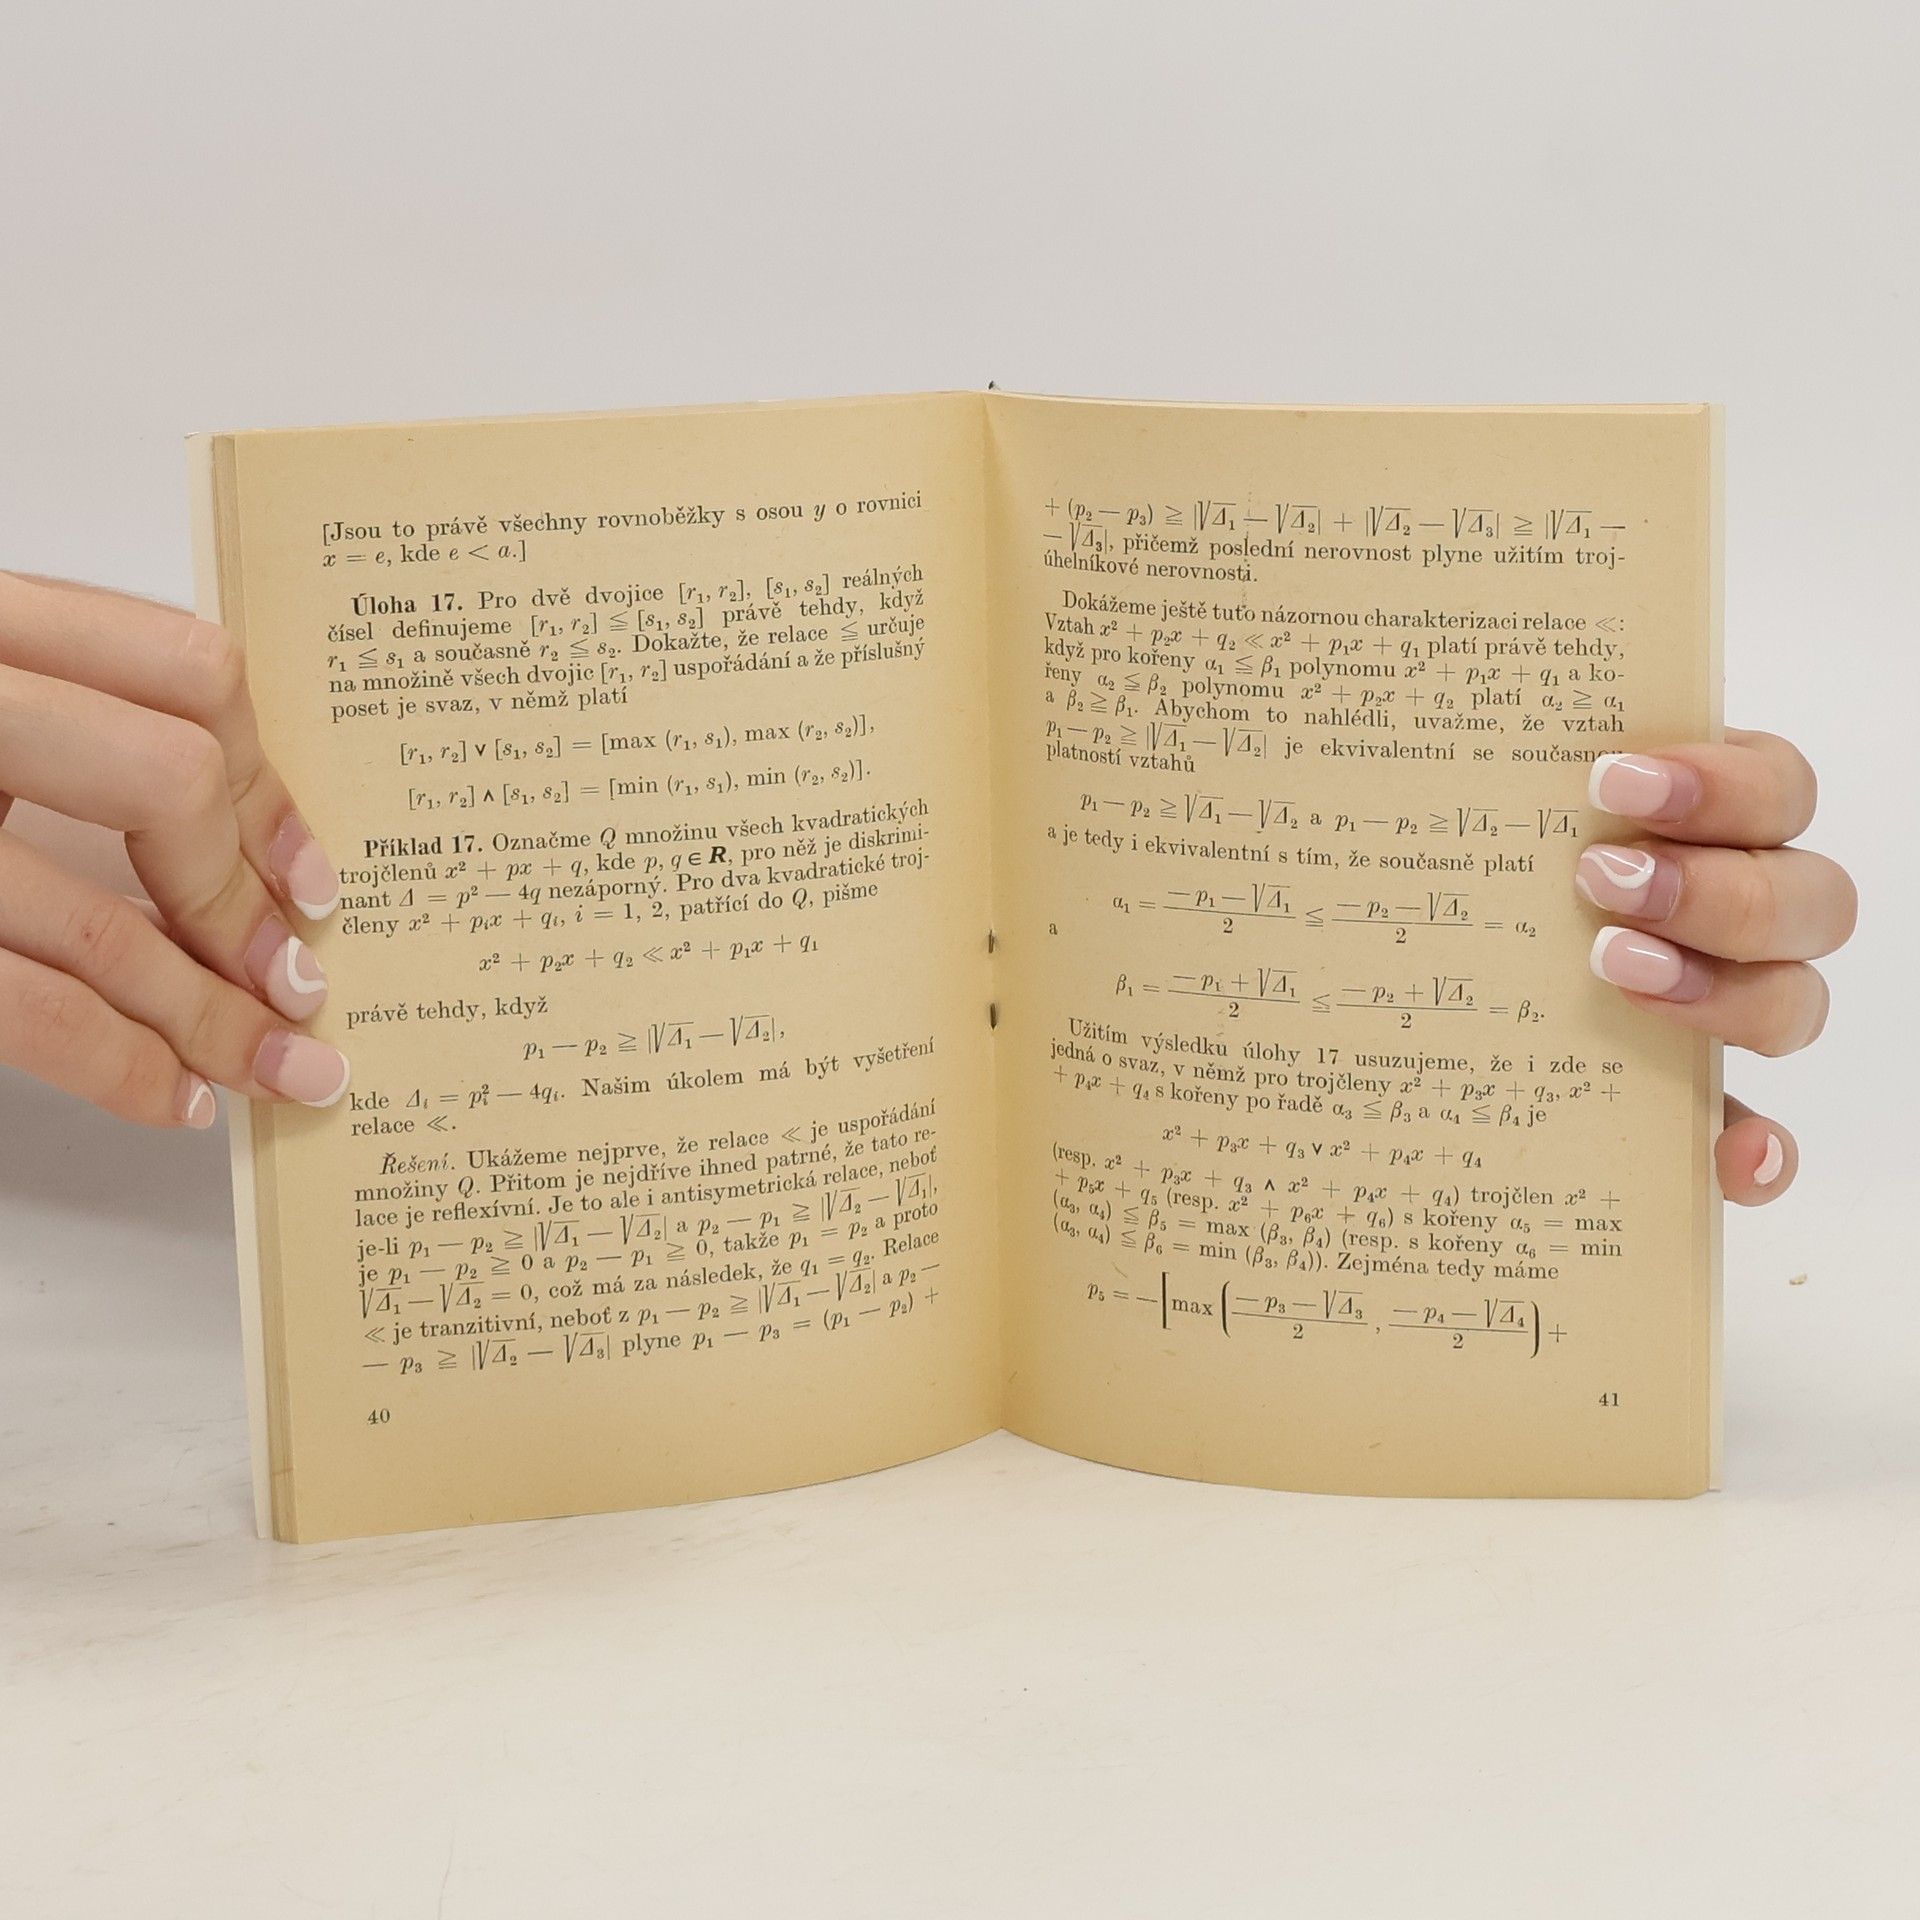 [Jsou to právě všechny rovnoběžky s osou y o rovnici
x = e, kde e < a.]
Úloha 17. Pro dvě dvojice [r₁, r₂], [s₁, s₂] reálných
čísel definujeme [r₁, r₂] ≦ [s₁, s₂] právě tehdy, když
r₁ ≦ s₁ a současně r₂ ≦ s₂. Dokažte, že relace ≦ určuje
na množině všech dvojic [r₁, r₂] uspořádání a že příslušný
poset je svaz, v němž platí
[r₁, r₂] ∨ [s₁, s₂] = [max (r₁, s₁), max (r₂, s₂)],
[r₁, r₂] ∧ [s₁, s₂] = [min (r₁, s₁), min (r₂, s₂)].
Příklad 17. Označme Q množinu všech kvadratických
trojčlenů x² + px + q, kde p, q ∈ R, pro něž je diskrimi-
nant Δ = p² — 4q nezáporný. Pro dva kvadratické troj-
členy x² + pᵢx + qᵢ, i = 1, 2, patřící do Q, pišme
x² + p₂x + q₂ ≪ x² + p₁x + q₁
právě tehdy, když
p₁ — p₂ ≧ |√Δ₁ — √Δ₂|,
kde Δᵢ = pᵢ² — 4qᵢ. Našim úkolem má být vyšetření
relace ≪.
Řešení. Ukážeme nejprve, že relace ≪ je uspořádání
množiny Q. Přitom je nejdříve ihned patrné, že tato re-
lace je reflexívní. Je to ale i antisymetrická relace, neboť
je-li p₁ — p₂ ≧ |√Δ₁ — √Δ₂| a p₂ — p₁ ≧ |√Δ₂ — √Δ₁|,
je p₁ — p₂ ≧ 0 a p₂ — p₁ ≧ 0, takže p₁ = p₂ a proto
√Δ₁ — √Δ₂ = 0, což má za následek, že q₁ = q₂. Relace
≪ je tranzitivní, neboť z p₁ — p₂ ≧ |√Δ₁ — √Δ₂| a p₂ —
— p₃ ≧ |√Δ₂ — √Δ₃| plyne p₁ — p₃ = (p₁ — p₂) +
40
+ (p₂ — p₃) ≧ |√Δ₁ — √Δ₂| + |√Δ₂ — √Δ₃| ≧ |√Δ₁ —
— √Δ₃|, přičemž poslední nerovnost plyne užitím troj-
úhelníkové nerovnosti.
Dokážeme ještě tuto názornou charakterizaci relace ≪:
Vztah x² + p₂x + q₂ ≪ x² + p₁x + q₁ platí právě tehdy,
když pro kořeny α₁ ≦ β₁ polynomu x² + p₁x + q₁ a ko-
řeny α₂ ≦ β₂ polynomu x² + p₂x + q₂ platí α₂ ≧ α₁
a β₂ ≧ β₁. Abychom to nahlédli, uvažme, že vztah
p₁ — p₂ ≧ |√Δ₁ — √Δ₂| je ekvivalentní se současnou
platností vztahů
p₁ — p₂ ≧ √Δ₁ — √Δ₂ a p₁ — p₂ ≧ √Δ₂ — √Δ₁
a je tedy i ekvivalentní s tím, že současně platí
α₁ = (—p₁ — √Δ₁)/2 ≦ (—p₂ — √Δ₂)/2 = α₂
a
β₁ = (—p₁ + √Δ₁)/2 ≦ (—p₂ + √Δ₂)/2 = β₂.
Užitím výsledku úlohy 17 usuzujeme, že i zde se
jedná o svaz, v němž pro trojčleny x² + p₃x + q₃, x² +
+ p₄x + q₄ s kořeny po řadě α₃ ≦ β₃ a α₄ ≦ β₄ je
x² + p₃x + q₃ ∨ x² + p₄x + q₄
(resp. x² + p₃x + q₃ ∧ x² + p₄x + q₄) trojčlen x² +
+ p₅x + q₅ (resp. x² + p₆x + q₆) s kořeny α₅ = max
(α₃, α₄) ≦ β₅ = max (β₃, β₄) (resp. s kořeny α₆ = min
(α₃, α₄) ≦ β₆ = min (β₃, β₄)). Zejména tedy máme
p₅ = —[max ((—p₃ — √Δ₃)/2, (—p₄ — √Δ₄)/2) +
41